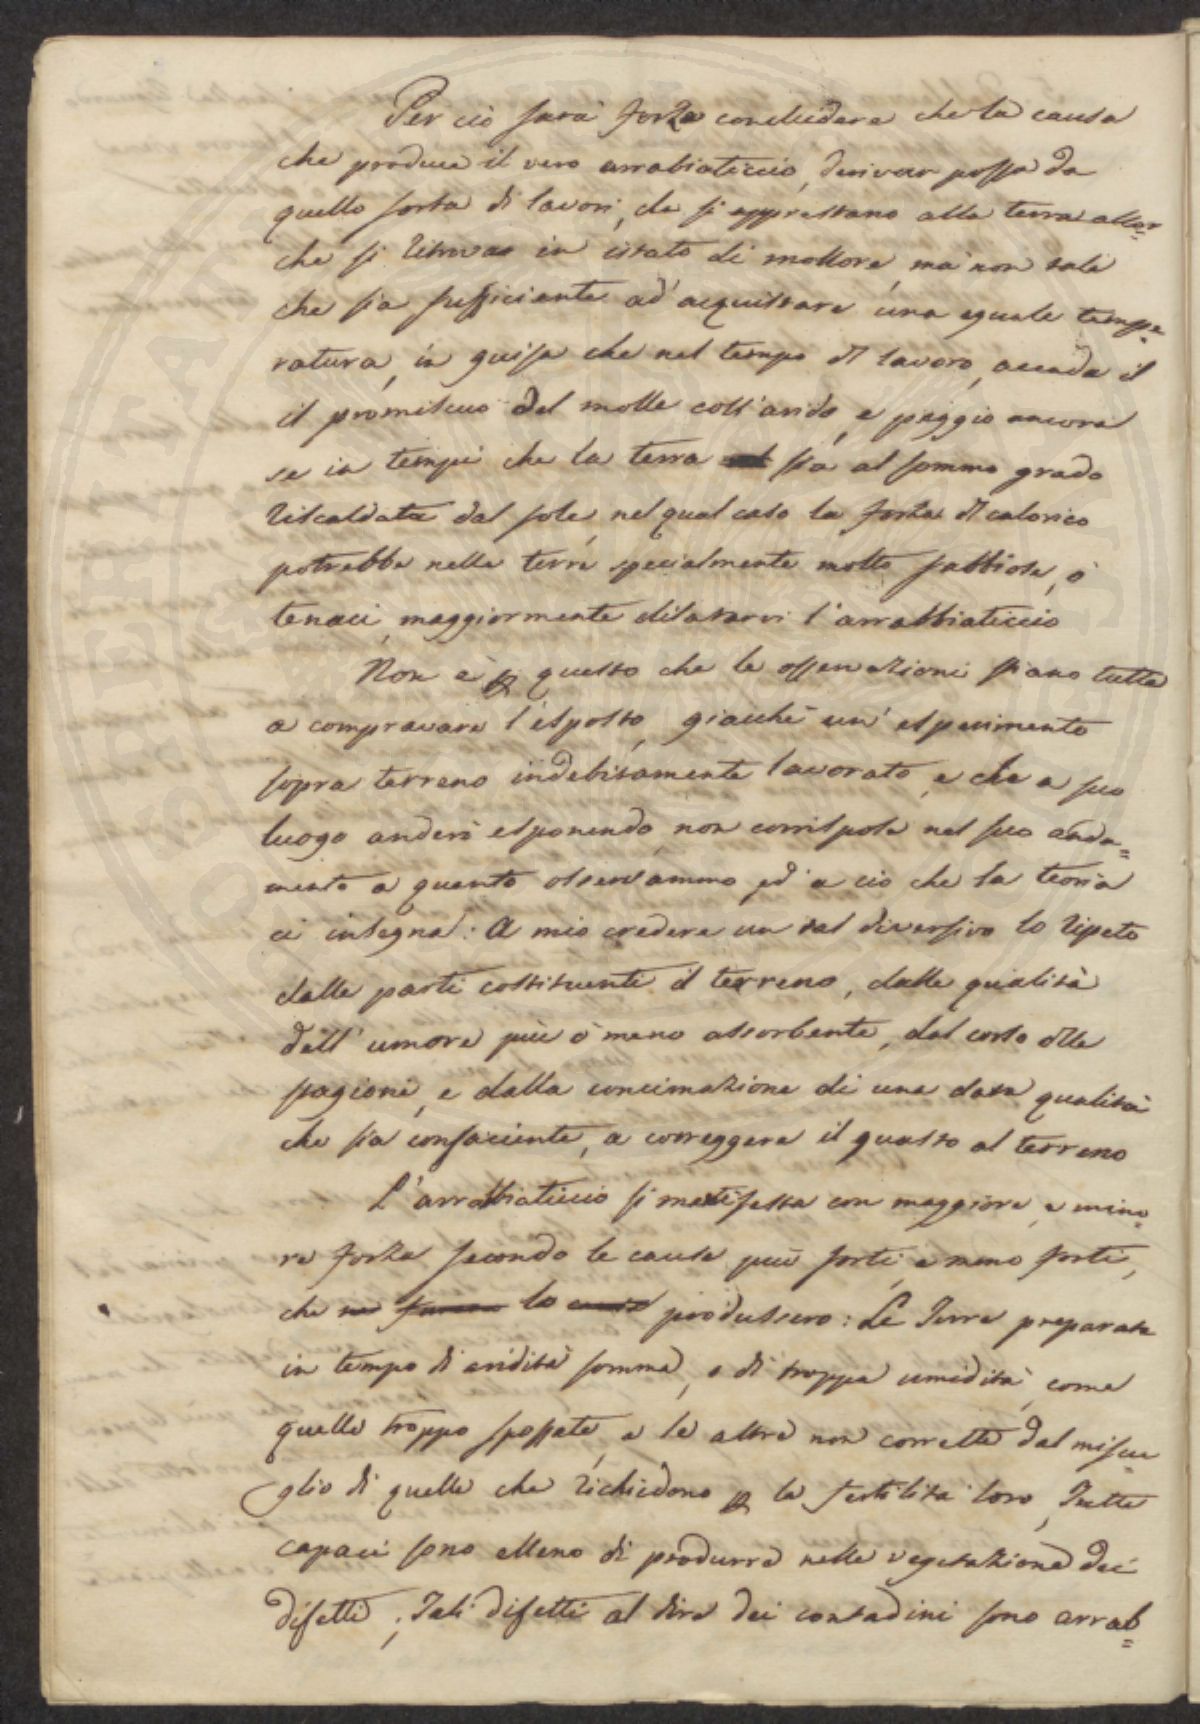 Per ciò sarà forza concludere che la causa
che produce il vero arrabiaticcio, derivar possa da
quella sorta di lavori, che si apprestano alla terra allor=
che si ritrova in istato di mollore, ma non tale
che sia sufficiente ad acquistare una eguale tempe=
ratura, in guisa che nel tempo di lavoro, accada il
il promiscuo del molle coll'arido, e peggio ancora
se in tempi che la terra sia al sommo grado
riscaldata dal sole, nel qual caso la forza di calorico
potrebbe nelle terre specialmente molto sabbiose, ò
tenaci, maggiormente dilatarvi l'arrabbiaticcio
Non è p questo che le osservazioni siano tutte
a comprovare l'esposto, giacchè un' esperimento
sopra terreno indebitamente lavorato, e che a suo
luogo anderò esponendo, non corrispose nel suo anda=
mento a quanto osservammo, ed a ciò che la teoria
ci insegna: A mio credere un tal diversivo lo ripeto
dalle parti costituenti il terreno, dalle qualità
dell' umore più o meno assorbente, dal corso delle
stagioni, e dalla concimazione di una data qualità
che sia confaciente, a correggere il guasto al terreno
L'arrabbiaticcio si manifesta con maggiore, e mino=
re forza secondo le cause più forti, e meno forti,
che lo produssero: Le Terre preparate
in tempo di aridità somma, o di troppa umidità, come
quelle troppo spossate, e le altre non corrette dal miscu=
glio di quelle che richiedono p la fertilità loro, Tutte
capaci sono elleno di produrre nella vegetazione dei
difetti; Tali difetti al dire dei contadini sono arrab=